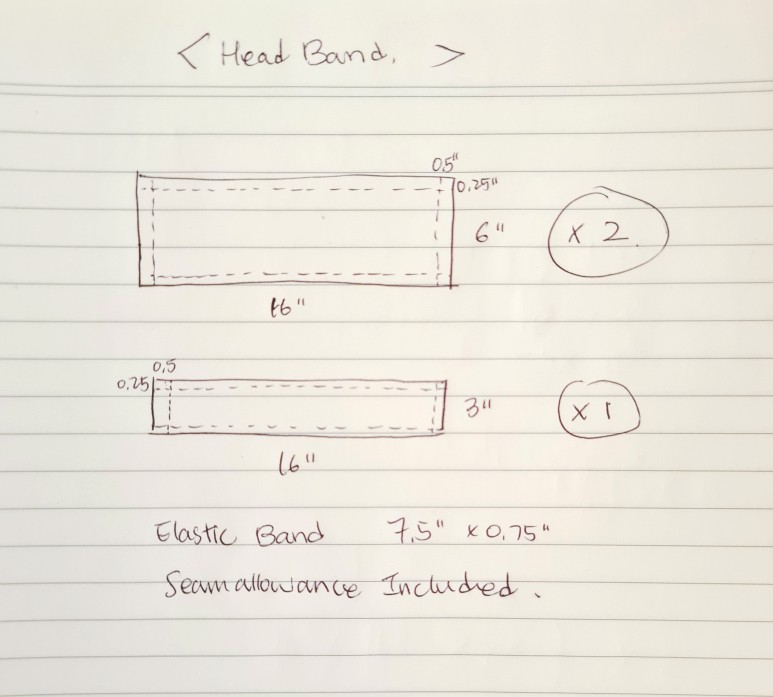 < Head Band. >
0.5"
0.25"
6"
x 2.
16"
0.5
0.25
3"
x 1
16"
Elastic Band 7.5" x 0.75"
Seam allowance Included.